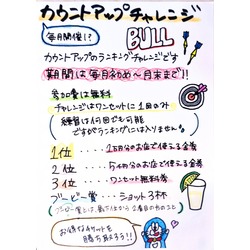 カウントアップチャレンジ
毎月開催!?
BULL
カウントアップのランキングチャレンジです
期間は毎月初め〜月末まで!!
参加費は無料
チャレンジはワンセットに1回のみ
練習は何回でも可能
ですがランキングには入りません
1位 ・・・ 1万円分のお店で使える金券
2位 ・・・ 5千円分のお店で使える金券
3位 ・・・ ワンセット無料券
ブービー賞 ・・・ ショット3杯
ブービー賞とは、最下位から2番目の方のこと
お得なチケットを
勝ち取ろう!!